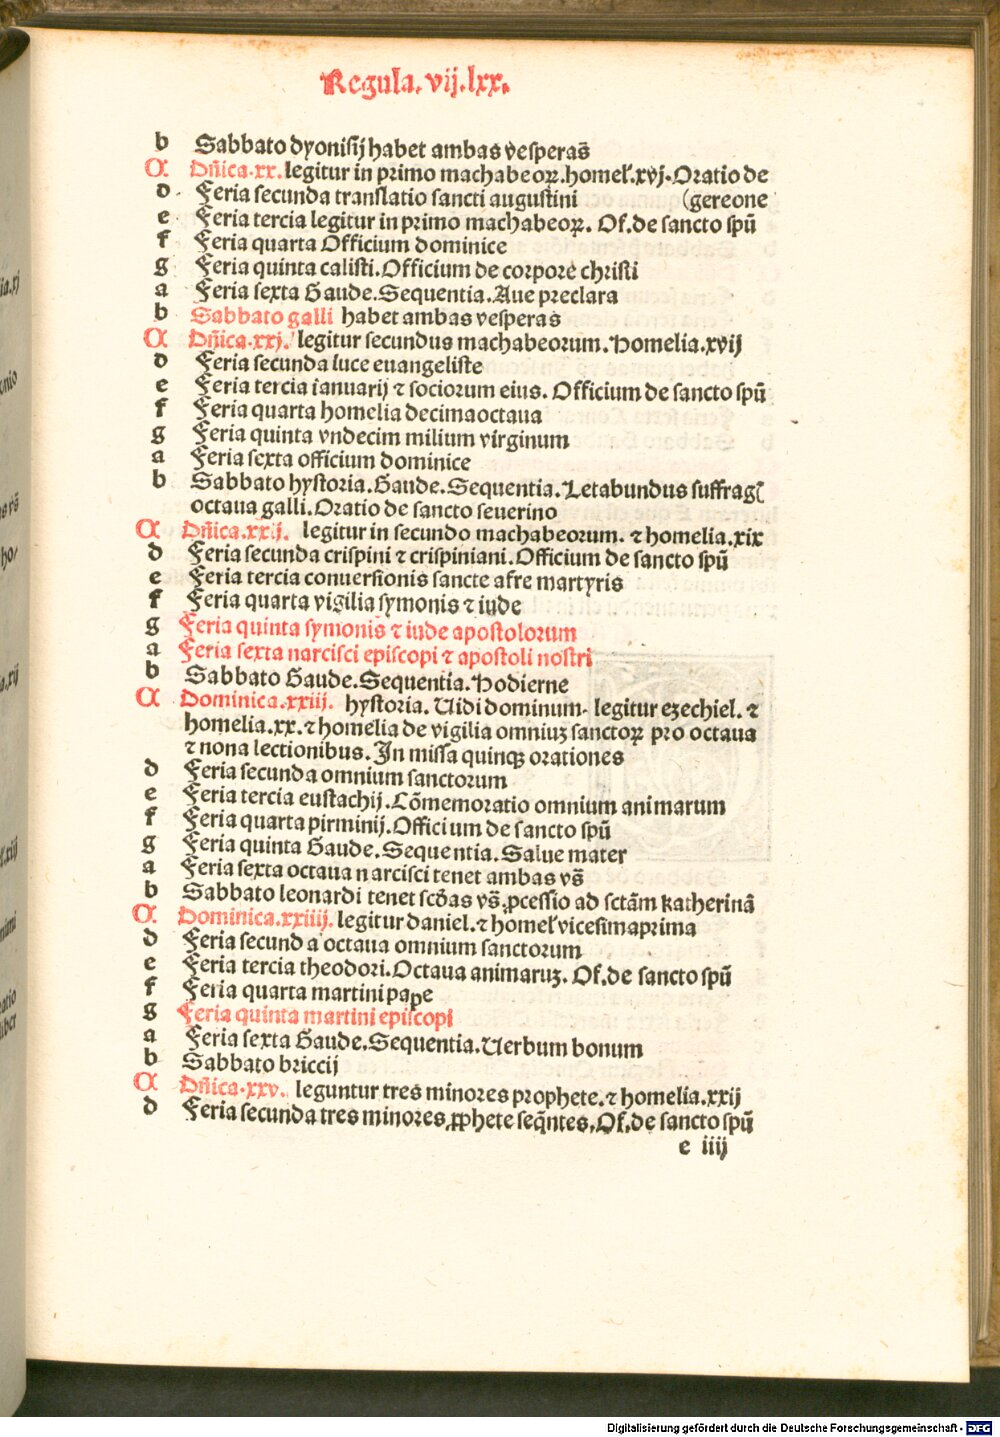 Regula.vij.lxx.
b Sabbato dyonisij habet ambas vesperas̄
C Dn̄ica.xx.legitur in primo machabeoꝝ.homeł.xvj.Oratio de
d Feria secunda translatio sancti augustini (gereone
e Feria tercia legitur in primo machabeoꝝ. Of.de sancto spū
f Feria quarta Officium dominice
g Feria quinta calisti.Officium de corpore christi
a Feria sexta Gaude.Sequentia.Aue preclara
b Sabbato galli habet ambas vesperas
C Dn̄ica.xxj. legitur secundus machabeorum.Homelia.xvij
d Feria secunda luce euangeliste
e Feria tercia ianuarij ⁊ sociorum eius. Officium de sancto spū
f Feria quarta homelia decimaoctaua
g Feria quinta vndecim milium virginum
a Feria sexta officium dominice
b Sabbato hystoria.Gaude.Sequentia.Letabundus suffrag̃
octaua galli.Oratio de sancto seuerino
C Dn̄ica.xxij. legitur in secundo machabeorum. ⁊ homelia.xix
d Feria secunda crispini ⁊ crispiniani.Officium de sancto spū
e Feria tercia conuersionis sancte afre martyris
f Feria quarta vigilia symonis ⁊ iude
g Feria quinta symonis ⁊ iude apostolorum
a Feria sexta narcisci episcopi ⁊ apostoli nostri
b Sabbato Gaude.Sequentia.Hodierne
C Dominica.xxiij. hystoria.Uidi dominum. legitur ezechiel. ⁊
homelia.xx.⁊ homelia de vigilia omniuʒ sanctoꝝ pro octaua
⁊ nona lectionibus.In missa quinqꝫ orationes
d Feria secunda omnium sanctorum
e Feria tercia eustachij.Cōmemoratio omnium animarum
f Feria quarta pirminij.Officium de sancto spū
g Feria quinta Gaude.Sequentia.Salue mater
a Feria sexta octaua narcisci tenet ambas vs̄
b Sabbato leonardi tenet scd̄as vs̄.ꝓcessio ad sctām katherinā
C Dominica.xxiiij.legitur daniel.⁊ homeł vicesimaprima
d Feria secunda octaua omnium sanctorum
e Feria tercia theodori.Octaua animaruʒ. Of.de sancto spū
f Feria quarta martini pape
g Feria quinta martini episcopi
a Feria sexta Gaude.Sequentia.Uerbum bonum
b Sabbato briccij
C Dn̄ica.xxv. leguntur tres minores prophete.⁊ homelia.xxij
d Feria secunda tres minores ꝓphete seq̄ntes.Of.de sancto spū
e iiij
Digitalisierung gefördert durch die Deutsche Forschungsgemeinschaft - DFG